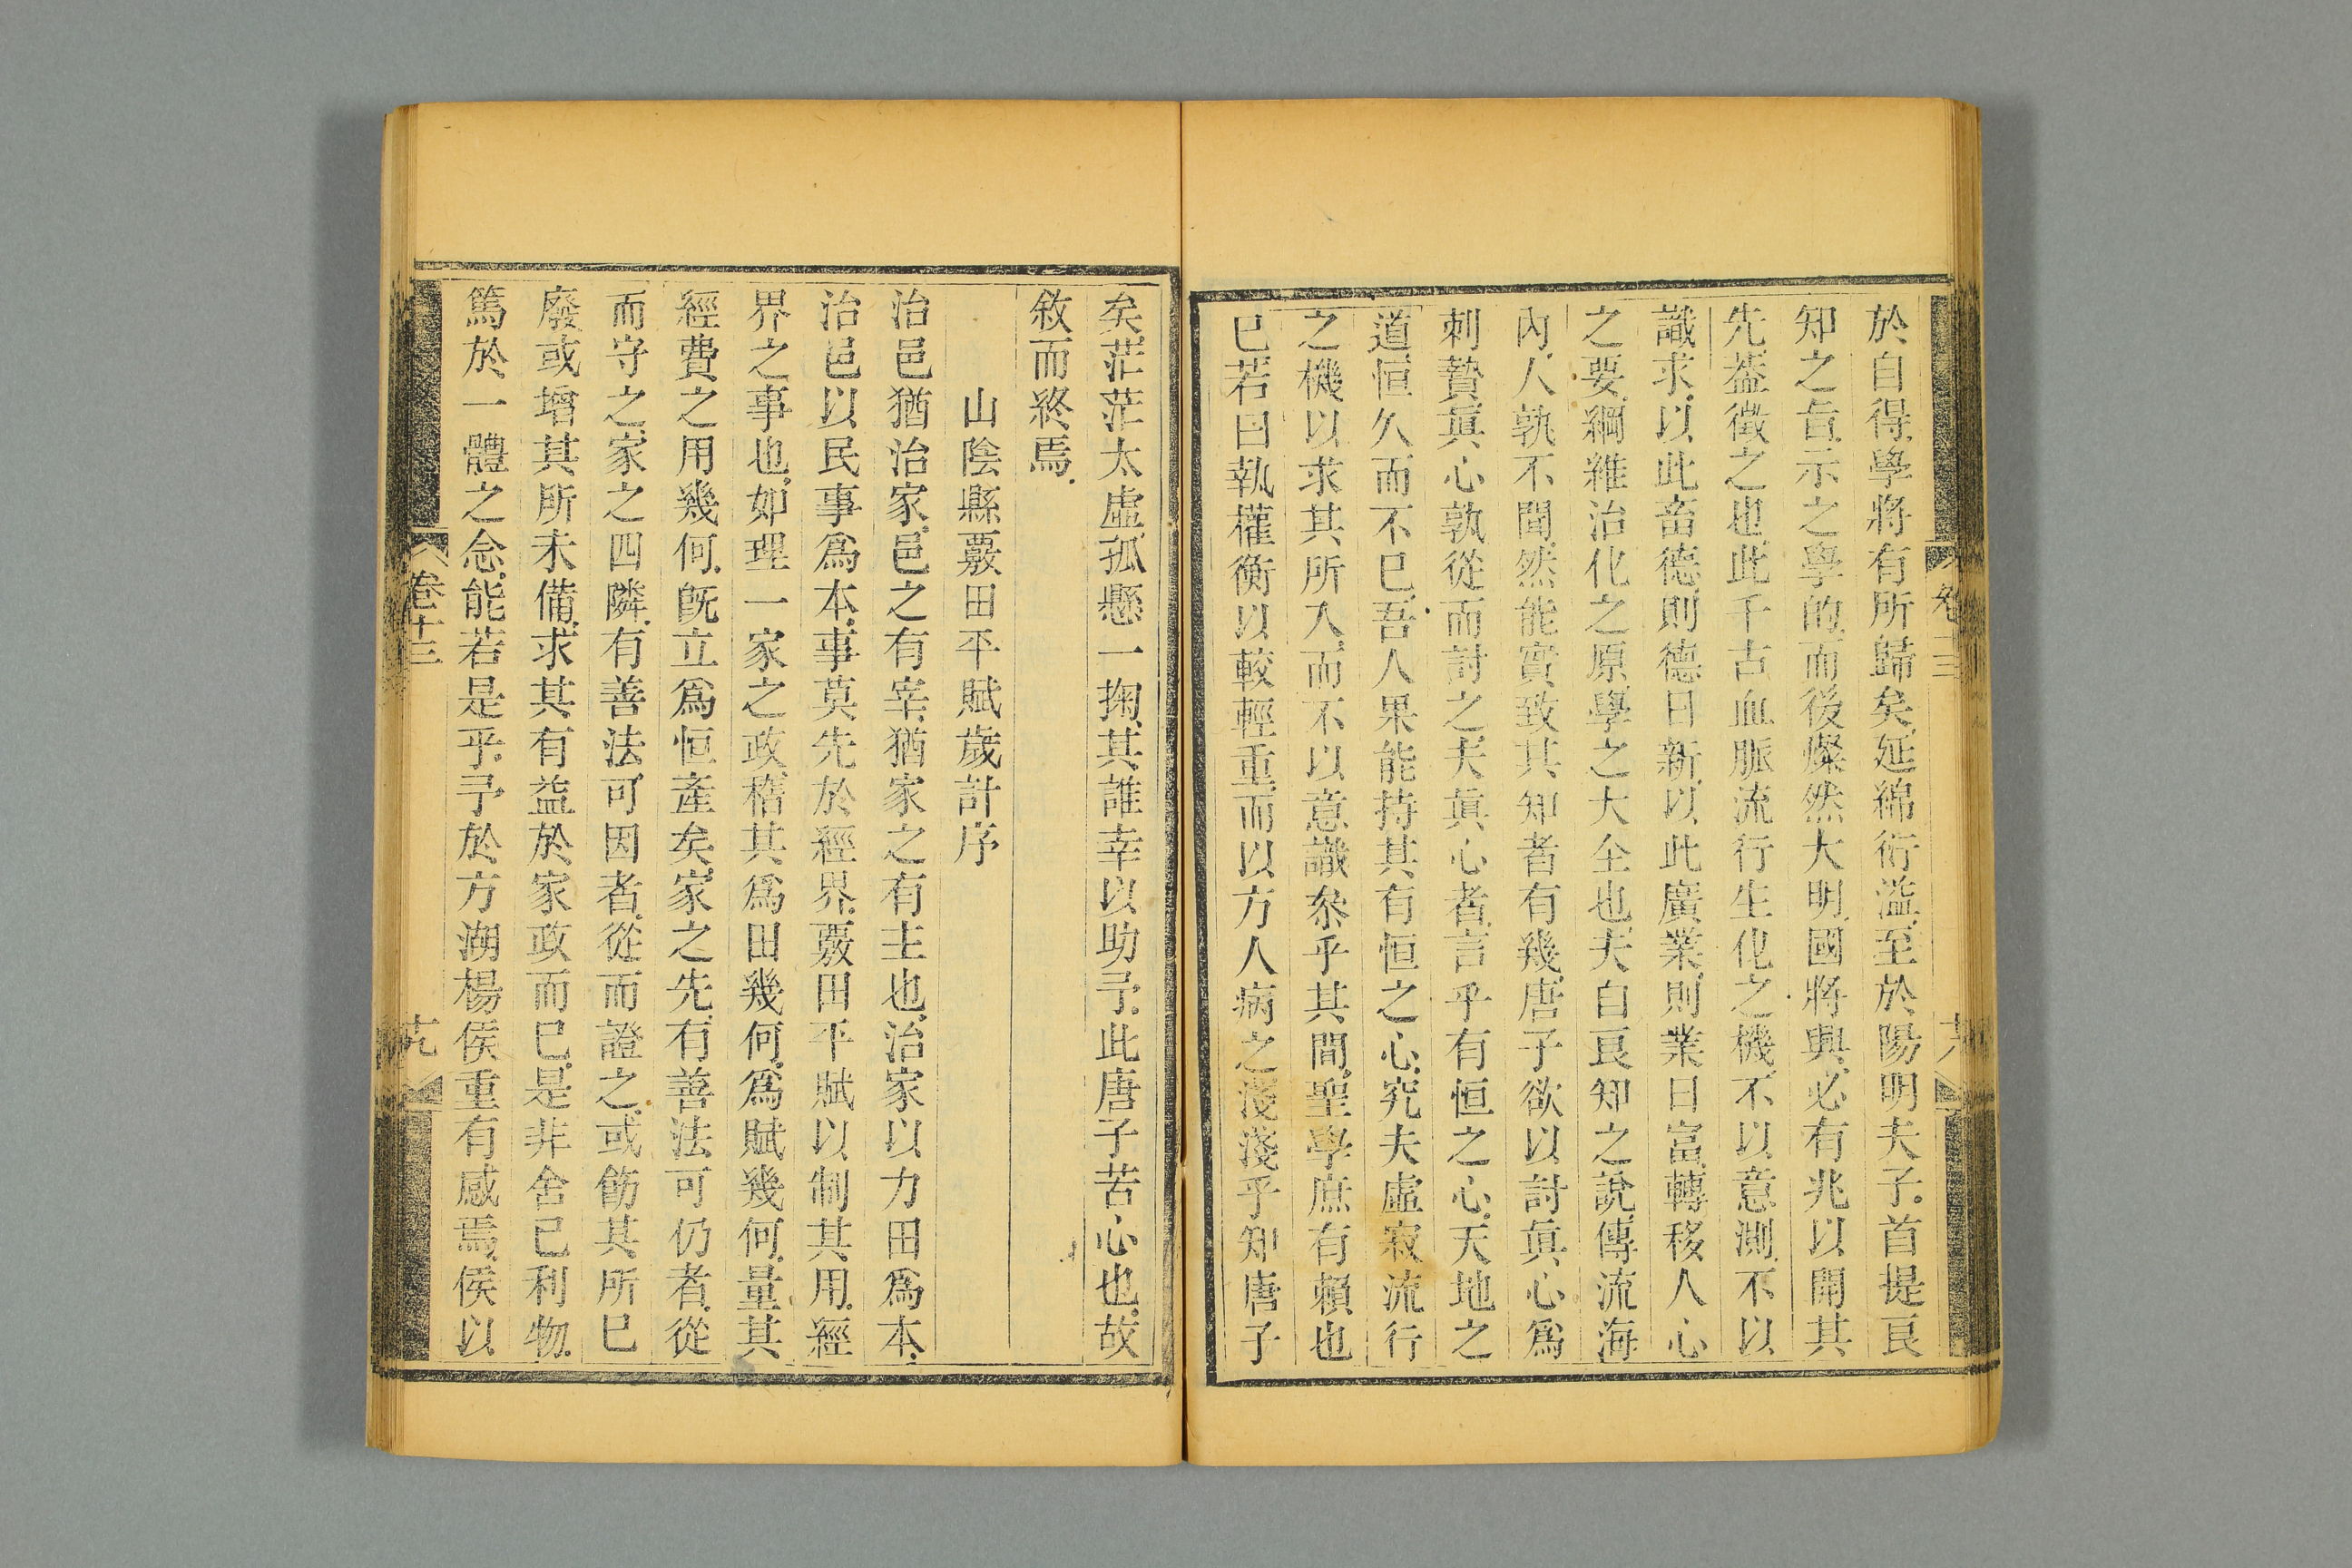 於自得學將有所歸矣延綿衍溢至於陽明夫子首提良
知之旨示之學的而後燦然大明國將興必有兆以開其
先葢徵之也此千古血脈流行生化之機不以意測不以
識求以此畜德則德日新以此廣業則業日富轉移人心
之要綱維治化之原學之大全也夫自良知之說傳流海
內人孰不聞然能實致其知者有幾唐子欲以討眞心爲
刺贄眞心孰從而討之夫眞心者言乎有恒之心天地之
道恒久而不已吾人果能持其有恒之心究夫虛寂流行
之機以求其所入而不以意識叅乎其間聖學庶有賴也
已若曰執權衡以較輕重而以方人病之淺淺乎知唐子
矣茫茫太虛孤懸一掬其誰幸以助予此唐子苦心也故
敘而終焉
山陰縣覈田平賦歲計序
治邑猶治家邑之有宰猶家之有主也治家以力田爲本
治邑以民事爲本事莫先於經界覈田平賦以制其用經
界之事也如理一家之政稽其爲田幾何爲賦幾何量其
經費之用幾何旣立爲恒產矣家之先有善法可仍者從
而守之家之四隣有善法可因者從而證之或飭其所已
廢或增其所未備求其有益於家政而已是非舍己利物
篤於一體之念能若是乎予於方湖楊侯重有感焉侯以
卷十三
十九